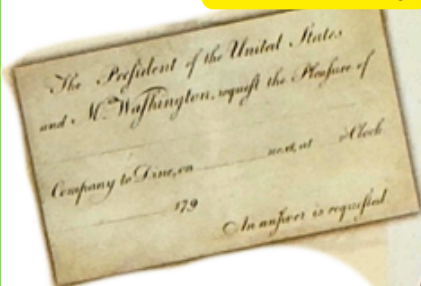 The Preſident of the United States
and Mrs. Waſhington, requeſt the Pleaſure of
Company to Dine, on next, at o'Clock
179
An anſwer is requeſted